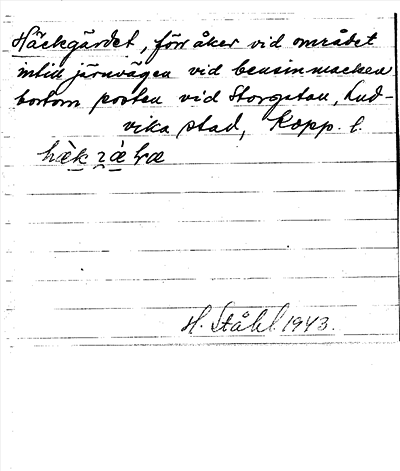 Häckgärdet, förr åker vid området
intill järnvägen vid bensinmacken
bortom posten vid Storgatan, Lud-
vika stad, Kopp. l.
H. Ståhl 1943.